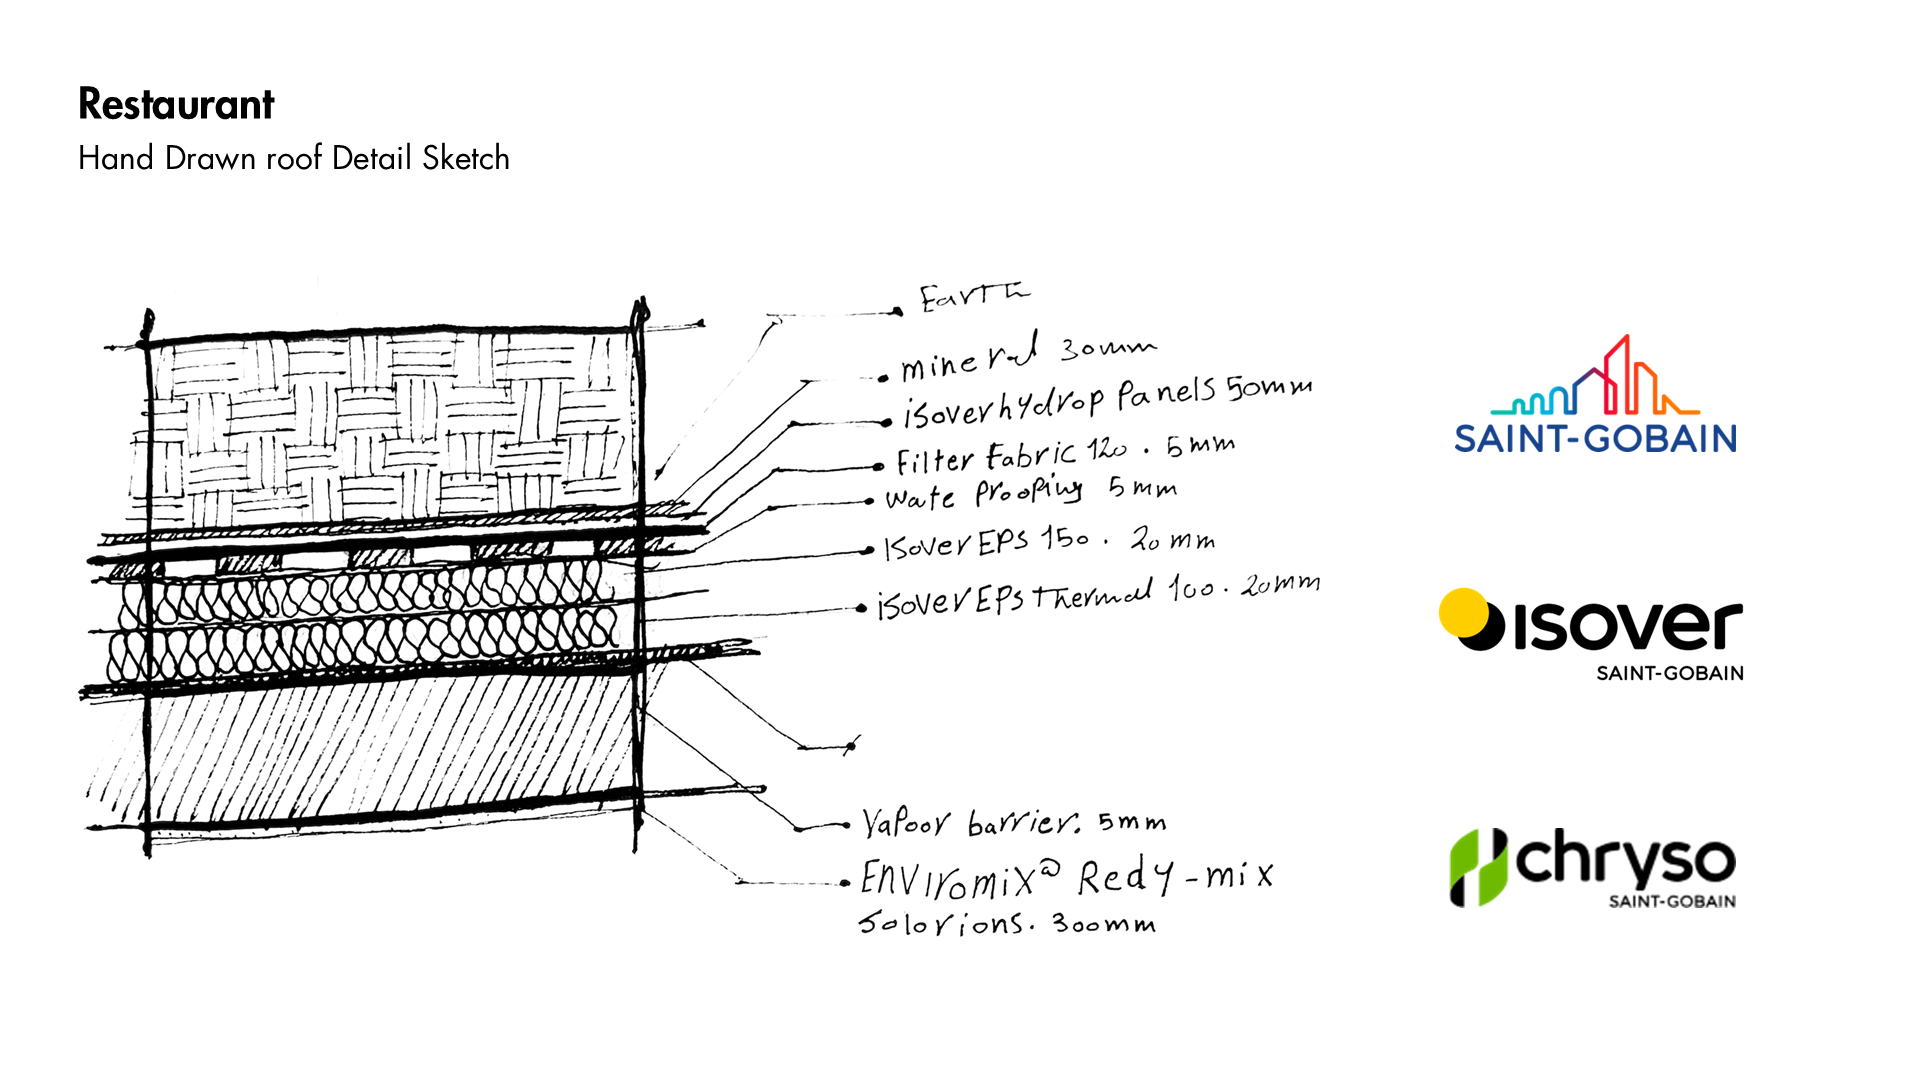 Restaurant
Hand Drawn roof Detail Sketch
Earth
mineral 30mm
isoverhydrop Panels 50mm
Filter Fabric 120 . 5mm
wate prooping 5mm
isover EPS 150 . 20mm
isover EPS thermal 100 . 20mm
Vapoor barrier. 5mm
Enviromix® Redy-mix
Solorions. 300mm
SAINT-GOBAIN
isover
SAINT-GOBAIN
chryso
SAINT-GOBAIN